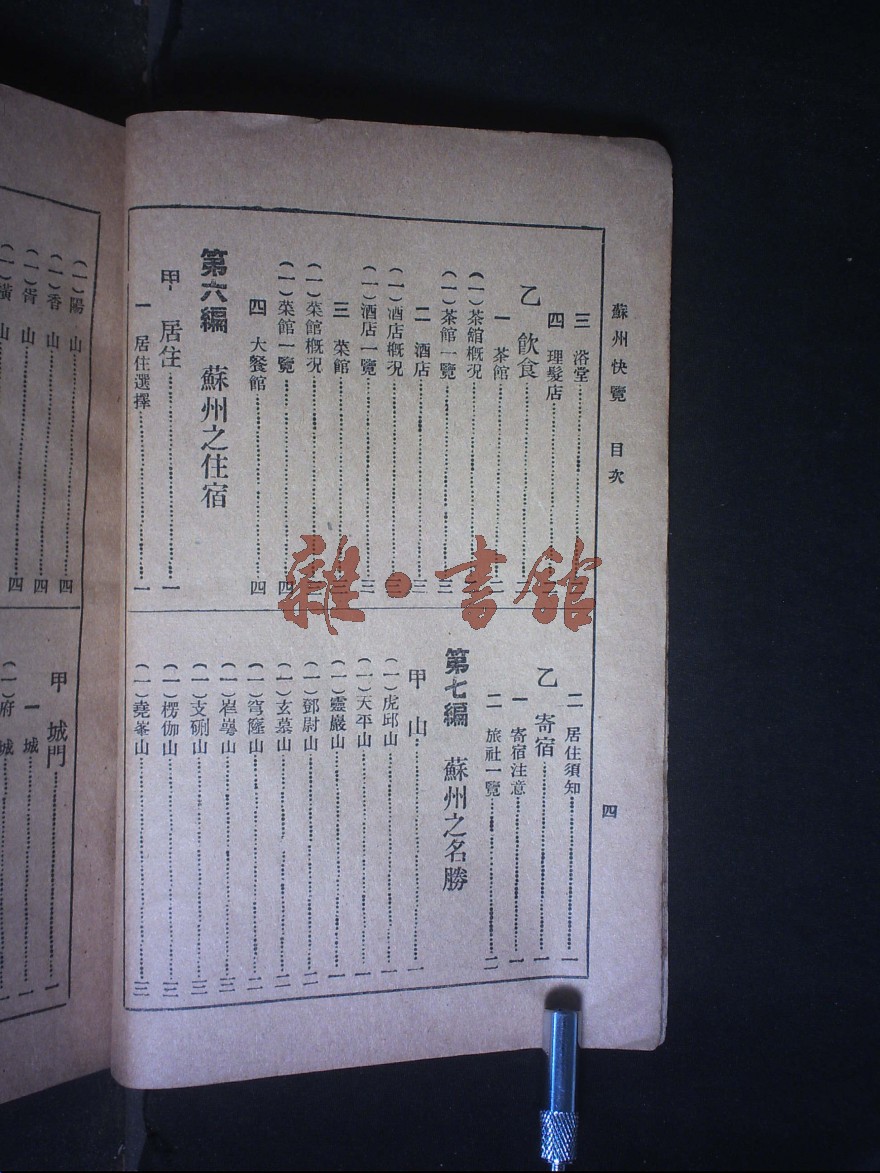 蘇州快覽　目次
四
三　浴堂
四　理髮店
乙　飲食
一　茶館……二
(一)茶館概況
(一)茶館一覽……三
二　酒店……三
(一)酒店概況
(一)酒店一覽……三
三　菜館
(一)菜館概況
(一)菜館一覽……四
四　大餐館……四
第六編　蘇州之住宿
甲　居住……一
一　居住選擇……一
二　居住須知……一
乙　寄宿……一
一　寄宿注意……一
二　旅社一覽……二
第七編　蘇州之名勝
甲　山……一
(一)虎邱山……一
(一)天平山……一
(一)靈巖山……一
(一)鄧尉山……二
(一)玄墓山……二
(一)穹窿山……二
(一)崋嶴山……三
(一)支硎山……三
(一)楞伽山……三
(一)堯峯山……三
(一)陽　山……四
(一)香　山……四
(一)胥　山……四
(一)橫　山
甲　城門……一
一　城……一
(一)府　城
雜·書館